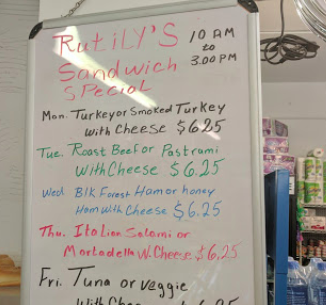 RutiLY'S
10 AM
to
3.00 PM
Sandwich
S.PeciaL
Mon. Turkey or Smoked Turkey
with cheese $6.25
Tue. Roast Beef or Pastrami
With Cheese $6.25
Wed Blk Forest Ham or honey
Ham with Cheese $6.25
Thu. Italian Salami or
Mortadella W. Cheese. $6.25
Fri. Tuna or Veggie
With Chee